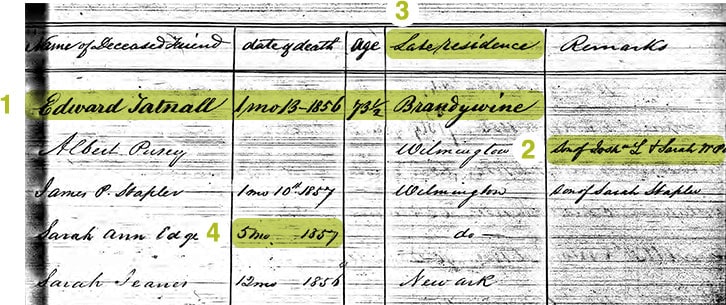 3
Name of Deceased Friend date of death age Late residence Remarks
1 Edward Tatnall 1 mo 13 - 1856 73½ Brandywine
Albert Pusey Wilmington 2 Son of Josha L & Sarah W
James P. Stapler 1 mo 10th 1857 Wilmington Son of Sarah Stapler
Sarah Ann Edge 4 5 mo 1857 do -
Sarah Jeanes 12 mo 1856 Newark